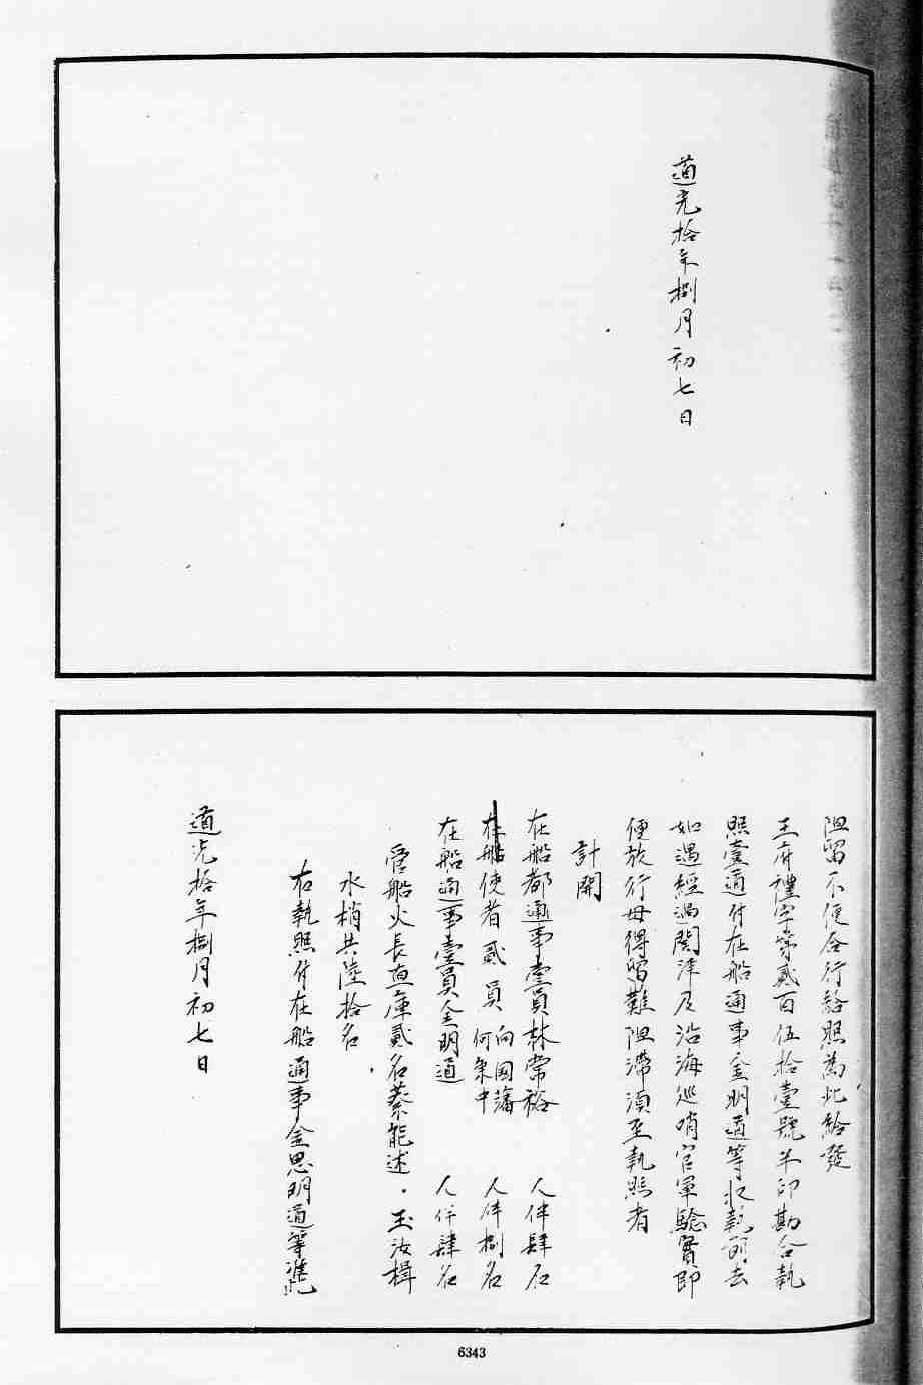 道光拾年捌月初七日
阻留不便合行給照為此給發
王府禮字第貳百伍拾壹號半印勘合執
照壹通付在船通事金明通等收執前去
如遇經過關津及沿海巡哨官軍驗實即
便放行毋得留難阻滯須至執照者
計開
在船都通事壹員林常裕 人伴肆名
在船使者貳員 向國藩 何秉中 人伴捌名
在船通事壹員金明通 人伴肆名
管船火長直庫貳名蔡能述·玉汝楫
水梢共陸拾名
右執照付在船通事金思明通等准此
道光拾年捌月初七日
6343